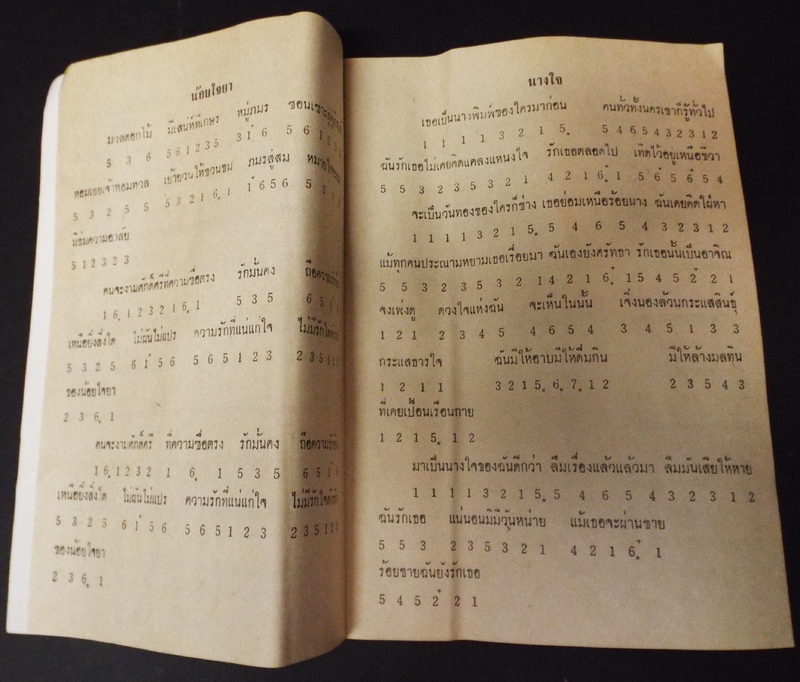 น้อยใจยา
มวลดอกไม้ มีเสน่ห์ที่เกษร หมู่ภมร
5 3 6 5 6 1 2 3 5 3 1 6 5 6 1
หอมเอยเจ้าหอมหวล เย้ายวนให้ชวนชม ภมรสู่สม
5 3 2 5 5 5 3 2 1 6̣ 1 1 6 5 6 5
มิขมความอาลัย
5 1 2 3 2 3
คนจะงามศักดิ์ศรีที่ความซื่อตรง รักมั่นคง
1 6̣ 1 2 3 2 1 6̣ 1 5 3 5 6 5
เหนือยิ่งสิ่งใด ไม่ผันไม่แปร ความรักที่แน่แก่ใจ
5 3 2 5 6 1̇ 5 6 5 6 5 1 2 3 2 3 5
ของน้อยใจยา
2 3 6̣ 1
คนจะงามศักดิ์ศรี ที่ความซื่อตรง รักมั่นคง
1 6̣ 1 2 3 2 1 6̣ 1 5 3 5 6 5
เหนือยิ่งสิ่งใด ไม่ผันไม่แปร ความรักที่แน่แก่ใจ
5 3 2 5 6 1̇ 5 6 5 6 5 1 2 3 2 3 5
ของน้อยใจยา
2 3 6̣ 1
นางใจ
เธอเป็นนางพิมพ์ของใครมาก่อน คนทั่วทั้งนครเขาก็รู้ทั่วไป
1 1 1 1 3 2 1 5̣ 5 4 6 5 4 3 2 3 1 2
ฉันรักเธอไม่เคยคิดแคลงแหนงใจ รักเธอตลอดไป เทิดไว้อยู่เหนือชีวา
5 5 3 2 3 5 3 2 1 4 2 1 6̣ 1 5 6̇ 5 6̇ 5 4
จะเป็นวันทองของใครก็ช่าง เธอย่อมเหนือร้อยนาง ฉันเคยคิดใฝ่หา
1 1 1 1 3 2 1 5̣ 5 4 6 5 4 3 2 3 1 2
แม้ทุกคนประณามหยามเธอเรื่อยมา ฉันเองยังศรัทธา รักเธอนั้นเป็นอาจิณ
5 5 3 2 3 5 3 2 1 4 2 1 6̣ 1 5 4 5 2̇ 2 1
จงเพ่งดู ดวงใจแห่งฉัน จะเห็นในนั้น เจิ่งนองล้วนกระแสสินธุ์
1 2 1 2 3 4 5 4 6 5 4 3 4 5 1 3 3
กระแสธารใจ ฉันมิให้อาบมิให้ดื่มกิน มิให้ล้างมลทิน
1 2 1 1 3 2 1 5̣ 6̣ 7̣ 1 2 2 3 5 4 3
ที่เคยเปื้อนเรือนกาย
1 2 1 5̣ 1 2
มาเป็นนางใจของฉันดีกว่า ลืมเรื่องแล้วแล้วมา ลืมมันเสียให้หาย
1 1 1 1 3 2 1 5̣ 5 4 6 5 4 3 2 3 1 2
ฉันรักเธอ แน่นอนมิมีวันหน่าย แม้เธอจะผ่านชาย
5 5 3 2 3 5 3 2 1 4 2 1 6̣ 1
ร้อยชายฉันยังรักเธอ
5 4 5 2̇ 2 1